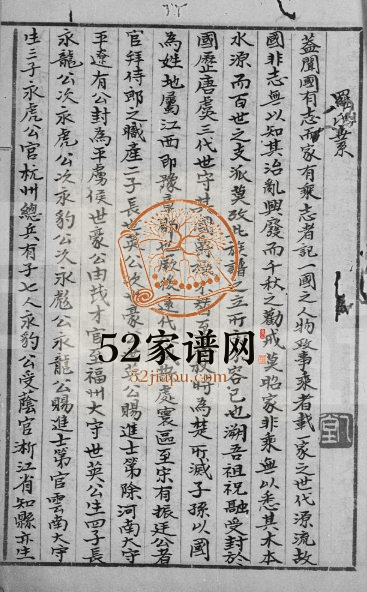 羅氏
蓋聞國有志而家有乘志者記一國之人物政事乘者載一家之世代源流故
國非志無以知其治亂興發而千秋之勸戒莫昭家非乘無以悉其木本
水源而百世之支派莫攷此族譜之立所 容已也溯吾祖祝融受封於
國歷唐虞三代世守其國 為楚所滅子孫以國
為姓地屬江西即豫章郡 遠代 處寰區至宋有振廷公者
官拜侍郎之職產二子長 英公次世豪 公賜進士第除河南大守
平遼有公封為平虜侯世豪公由茂才官至福州大守世英公生四子長
永龍公次永虎公次永豹公次永彪公永龍公賜進士第官雲南大守
生三子永虎公官杭州總兵有子七人永豹公受蔭官浙江省知縣亦生
52家谱网
52jiapu.com